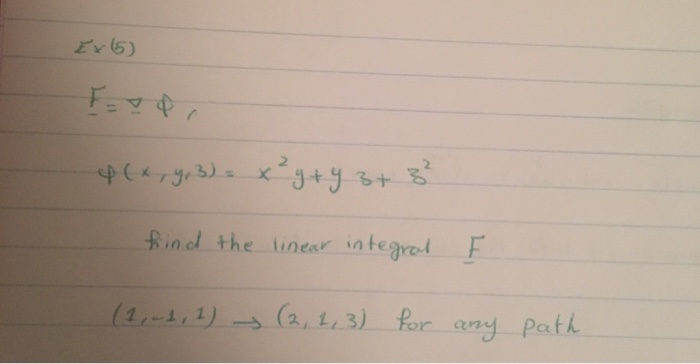 Ex(5)
F = ∇ φ,
φ(x, y, z) = x²y + y z + z²
find the linear integral F
(1, -1, 1) → (2, 1, 3) for any path